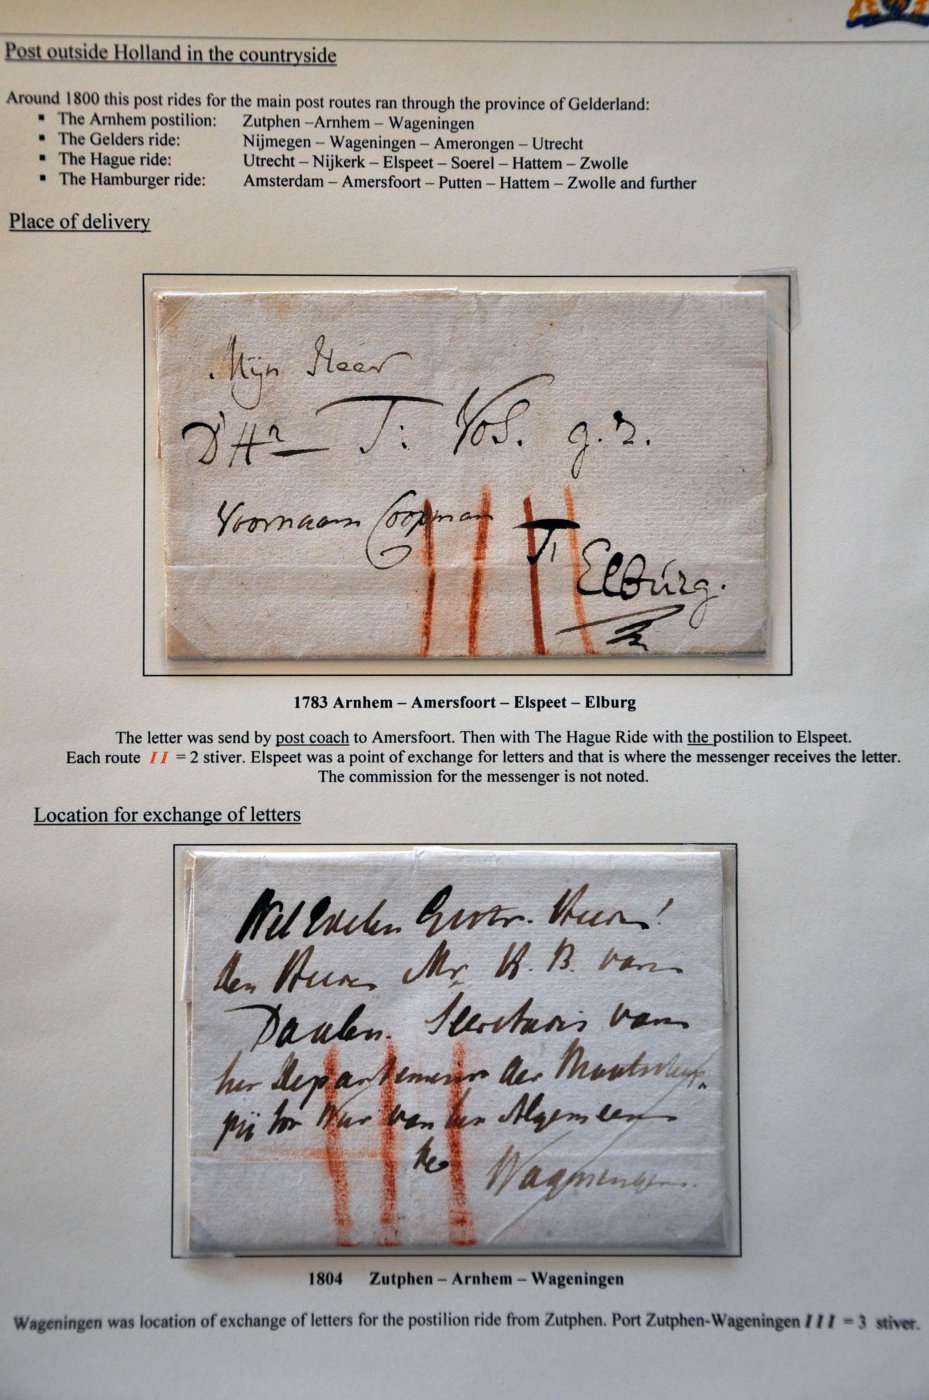 Post outside Holland in the countryside
Around 1800 this post rides for the main post routes ran through the province of Gelderland:
▪ The Arnhem postilion: Zutphen –Arnhem – Wageningen
▪ The Gelders ride: Nijmegen – Wageningen – Amerongen – Utrecht
▪ The Hague ride: Utrecht – Nijkerk – Elspeet – Soerel – Hattem – Zwolle
▪ The Hamburger ride: Amsterdam – Amersfoort – Putten – Hattem – Zwolle and further
Place of delivery
Mijn Heer
D'Hr T: Vos. g. z.
Voornaam Coopman
Elburg.
1783 Arnhem – Amersfoort – Elspeet – Elburg
The letter was send by post coach to Amersfoort. Then with The Hague Ride with the postilion to Elspeet.
Each route II = 2 stiver. Elspeet was a point of exchange for letters and that is where the messenger receives the letter.
The commission for the messenger is not noted.
Location for exchange of letters
Wel Edelen Heer!
den Heer Mr. H. B. van
Daalen. Secretaris van
het Departement der Maatschap
pij tot Nut van het Algemeen
te Wageningen.
1804 Zutphen – Arnhem – Wageningen
Wageningen was location of exchange of letters for the postilion ride from Zutphen. Port Zutphen-Wageningen III = 3 stiver.